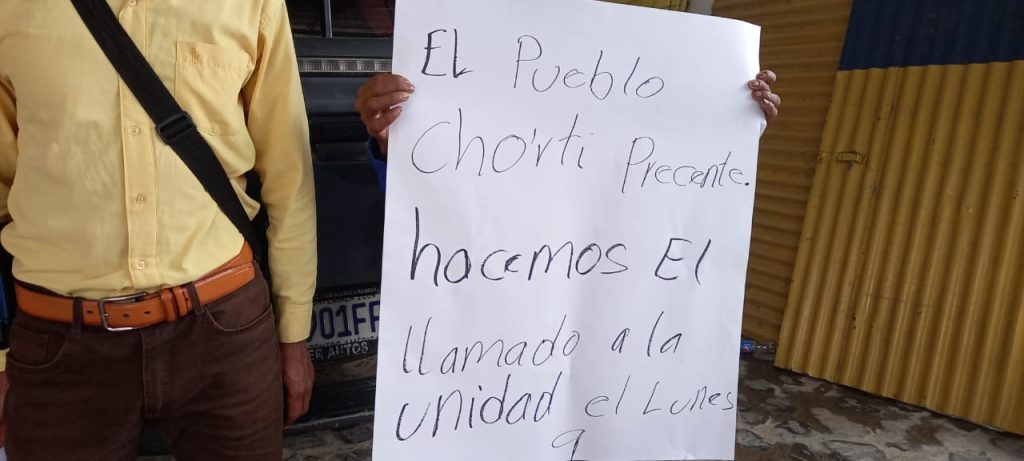 EL Pueblo
Chorti Precente.
hacemos El
llamado a la
unidad el Lunes
9
01FF
ER AUTOS